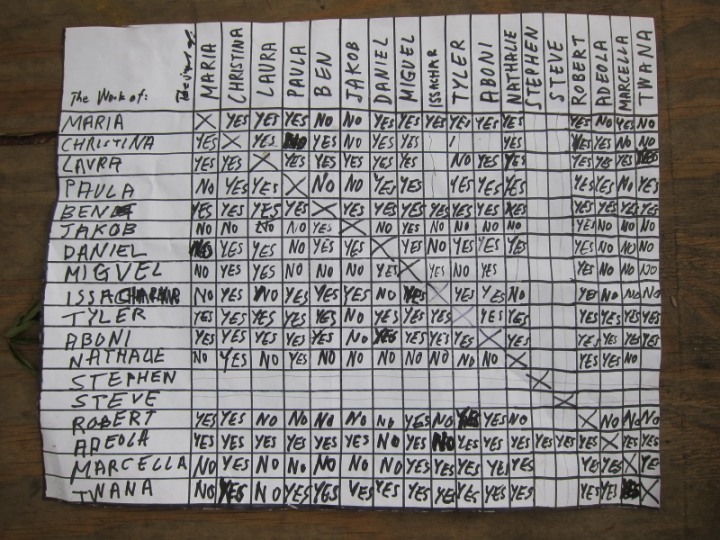 The Work of: MARIA CHRISTINA LAURA PAULA BEN JAKOB DANIEL MIGUEL ISSACHAR TYLER ABONI NATHALIE STEPHEN STEVE ROBERT ADEOLA MARCELLA TWANA
MARIA X YES YES YES NO NO YES YES YES YES YES YES YES NO YES NO
CHRISTINA YES X YES NO YES NO YES YES YES YES YES NO NO
LAURA YES YES X YES YES NO YES YES NO YES YES YES YES YES
PAULA NO YES YES X NO NO YES YES YES YES YES YES YES NO YES
BEN YES YES YES YES X YES YES YES YES YES YES YES YES YES YES YES
JAKOB NO NO NO NO YES X NO NO NO NO NO NO YES NO NO NO
DANIEL NO YES YES NO YES NO X YES NO YES YES YES YES NO NO NO
MIGUEL NO YES YES NO NO NO YES X YES NO YES YES NO NO NO
ISSACHAR NO YES NO YES YES YES NO YES X YES YES NO YES NO NO NO
TYLER YES YES YES YES YES NO YES YES YES X YES YES YES YES YES YES
ABONI YES YES YES YES YES NO YES YES NO YES X YES YES YES YES YES
NATHALIE NO YES NO YES NO NO NO NO NO NO NO X YES YES NO
STEPHEN X
STEVE X
ROBERT YES YES NO NO NO NO NO YES NO YES YES NO X NO NO NO
ADEOLA YES YES YES YES YES YES NO YES NO YES YES YES YES YES YES X YES YES
MARCELLA NO YES NO NO NO NO NO YES YES YES YES YES YES YES X YES
TWANA NO YES NO YES YES YES YES YES YES YES YES YES YES YES YES X